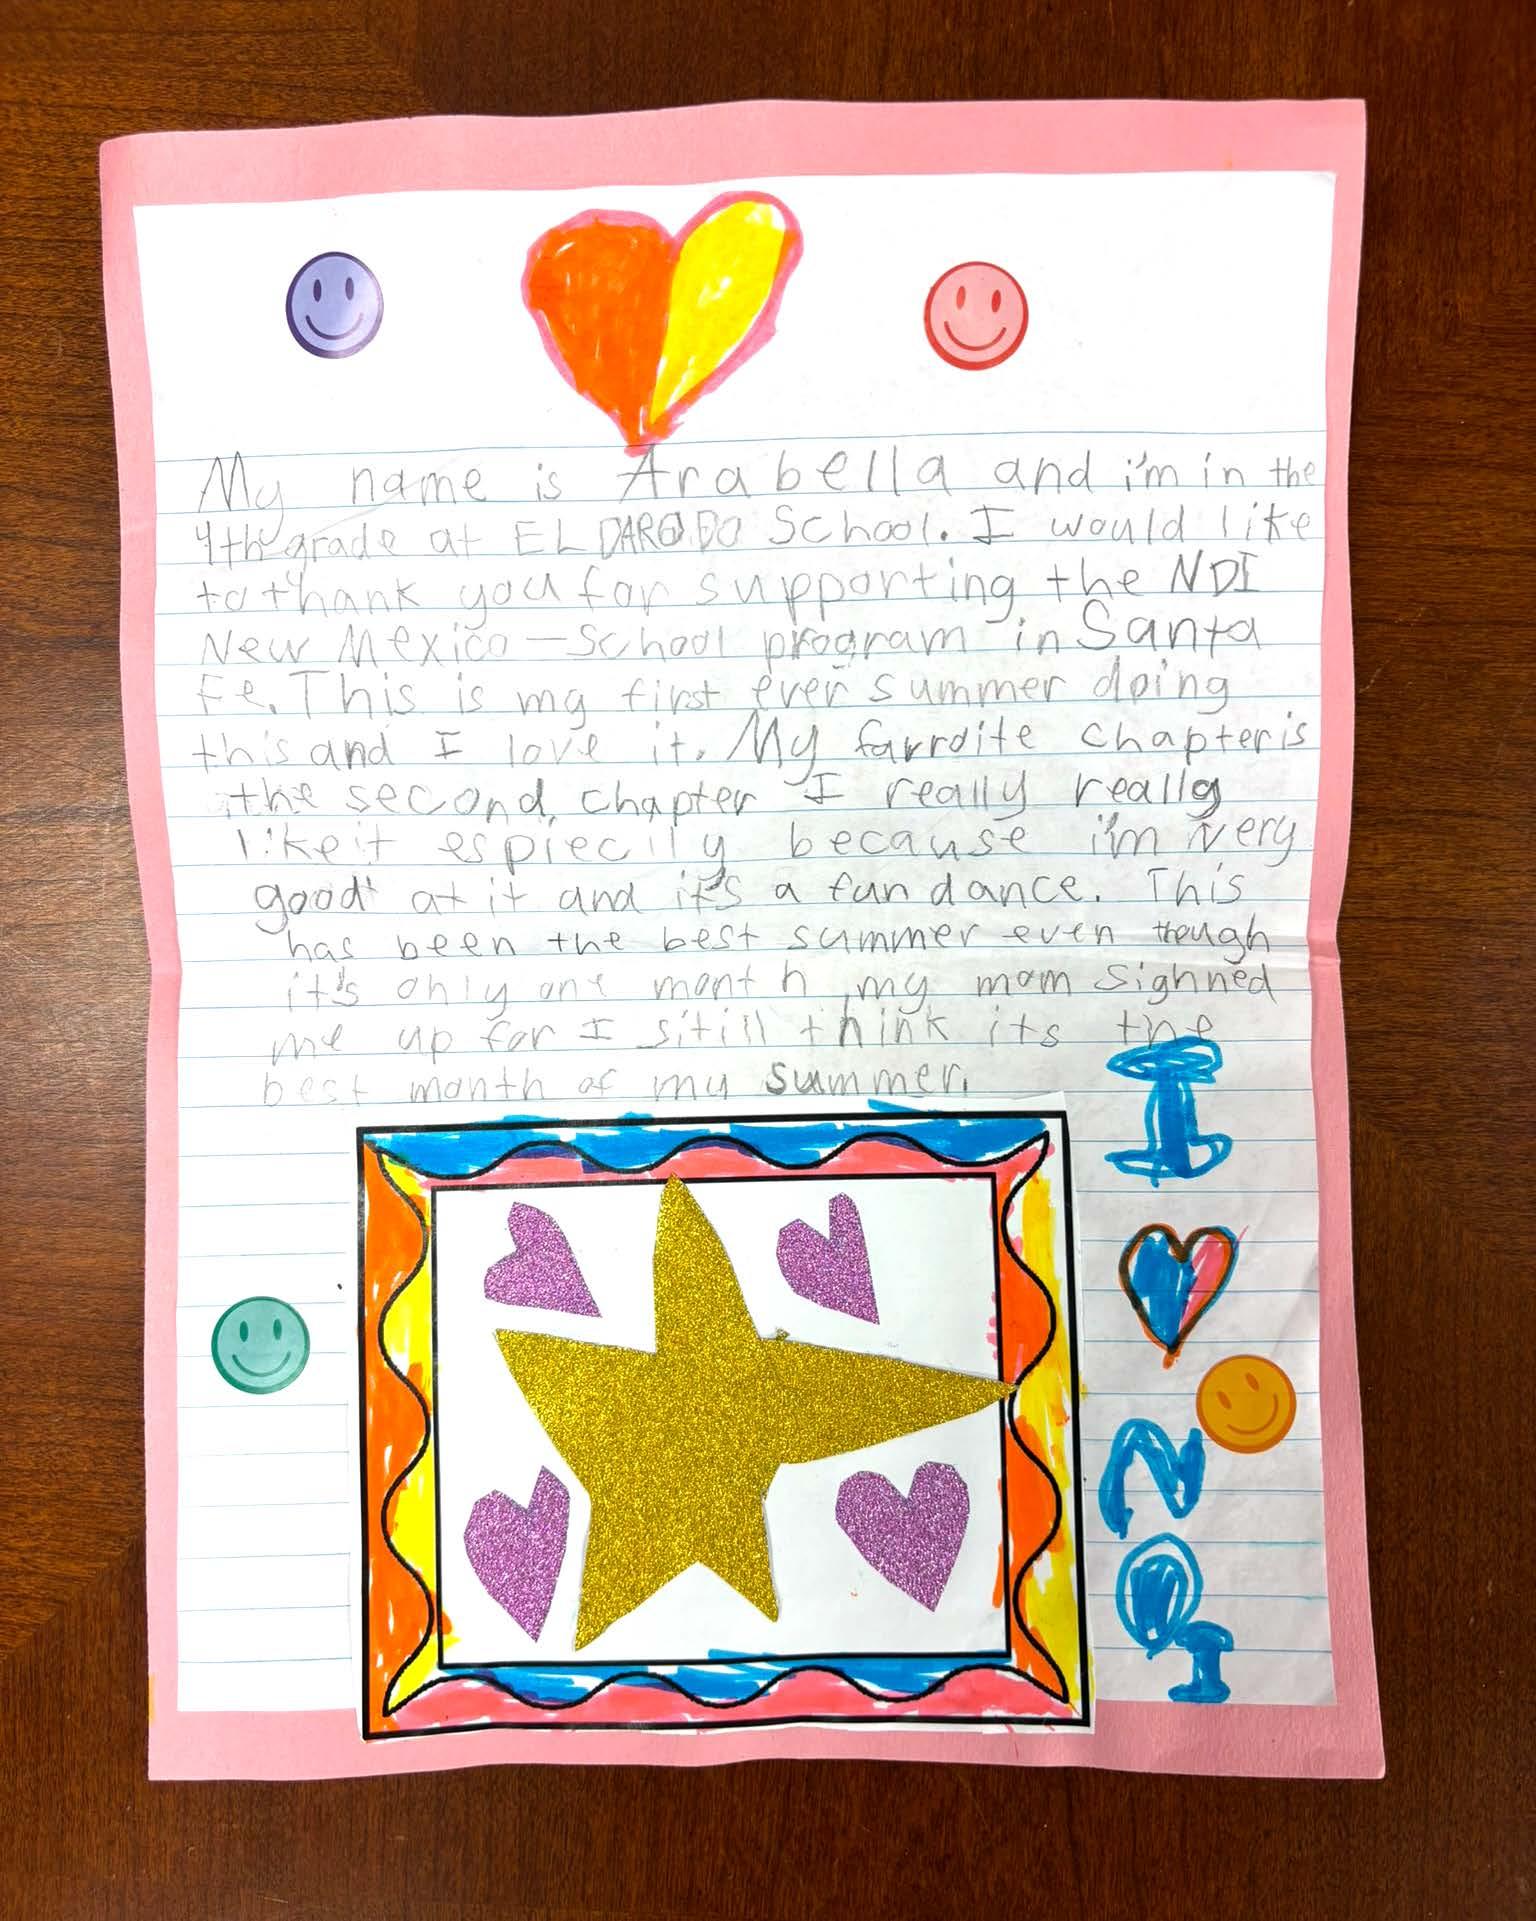 My name is Arabella and i'm in the
4th grade at EL DARODO School. I would like
to thank you for supporting the NDI
New Mexico - School program in Santa
Fe. This is my first ever summer doing
this and I love it. My favroite chapter is
the second, chapter I really really
like it espiecilly because i'm very
good at it and it's a fun dance. This
has been the best summer even though
it's only one month, my mom sighned
me up for I sitill think its the
best month of my summer.
I
NDI